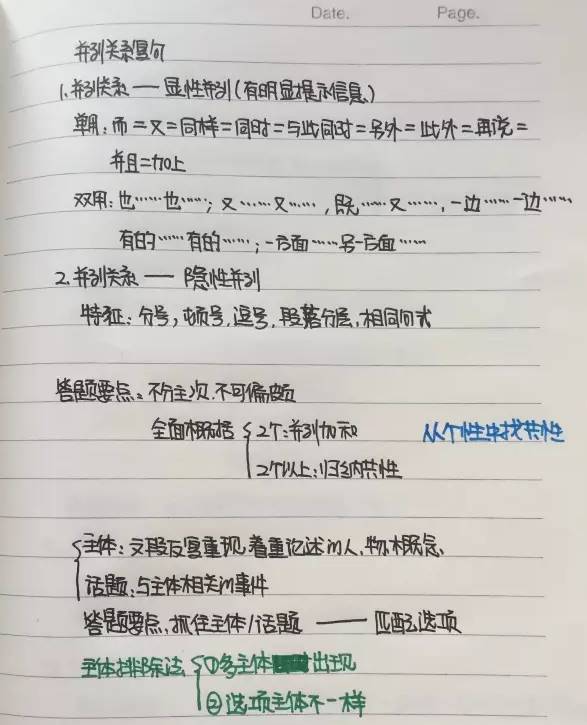 Date.    Page.
并列关系复句
1.并列关系 —— 显性并列(有明显提示信息)
单用:而=又=同样=同时=与此同时=另外=此外=再说=
并且=加上
双用:也……也……;又……又……,既……又……,一边……一边……
有的……有的……;一方面……另一方面……
2.并列关系 —— 隐性并列
特征:分号,顿号,逗号,段落分层,相同句式
答题要点:不分主次,不可偏颇
全面概括 { 2个:并列加和    从个性中找共性
2个以上:归纳共性
{主体:文段反复重现,着重论述的人、物、概念、
话题:与主体相关的事件
答题要点,抓住主体/话题 —— 匹配选项
主体排除法 {①多主体 出现
②选项主体不一样